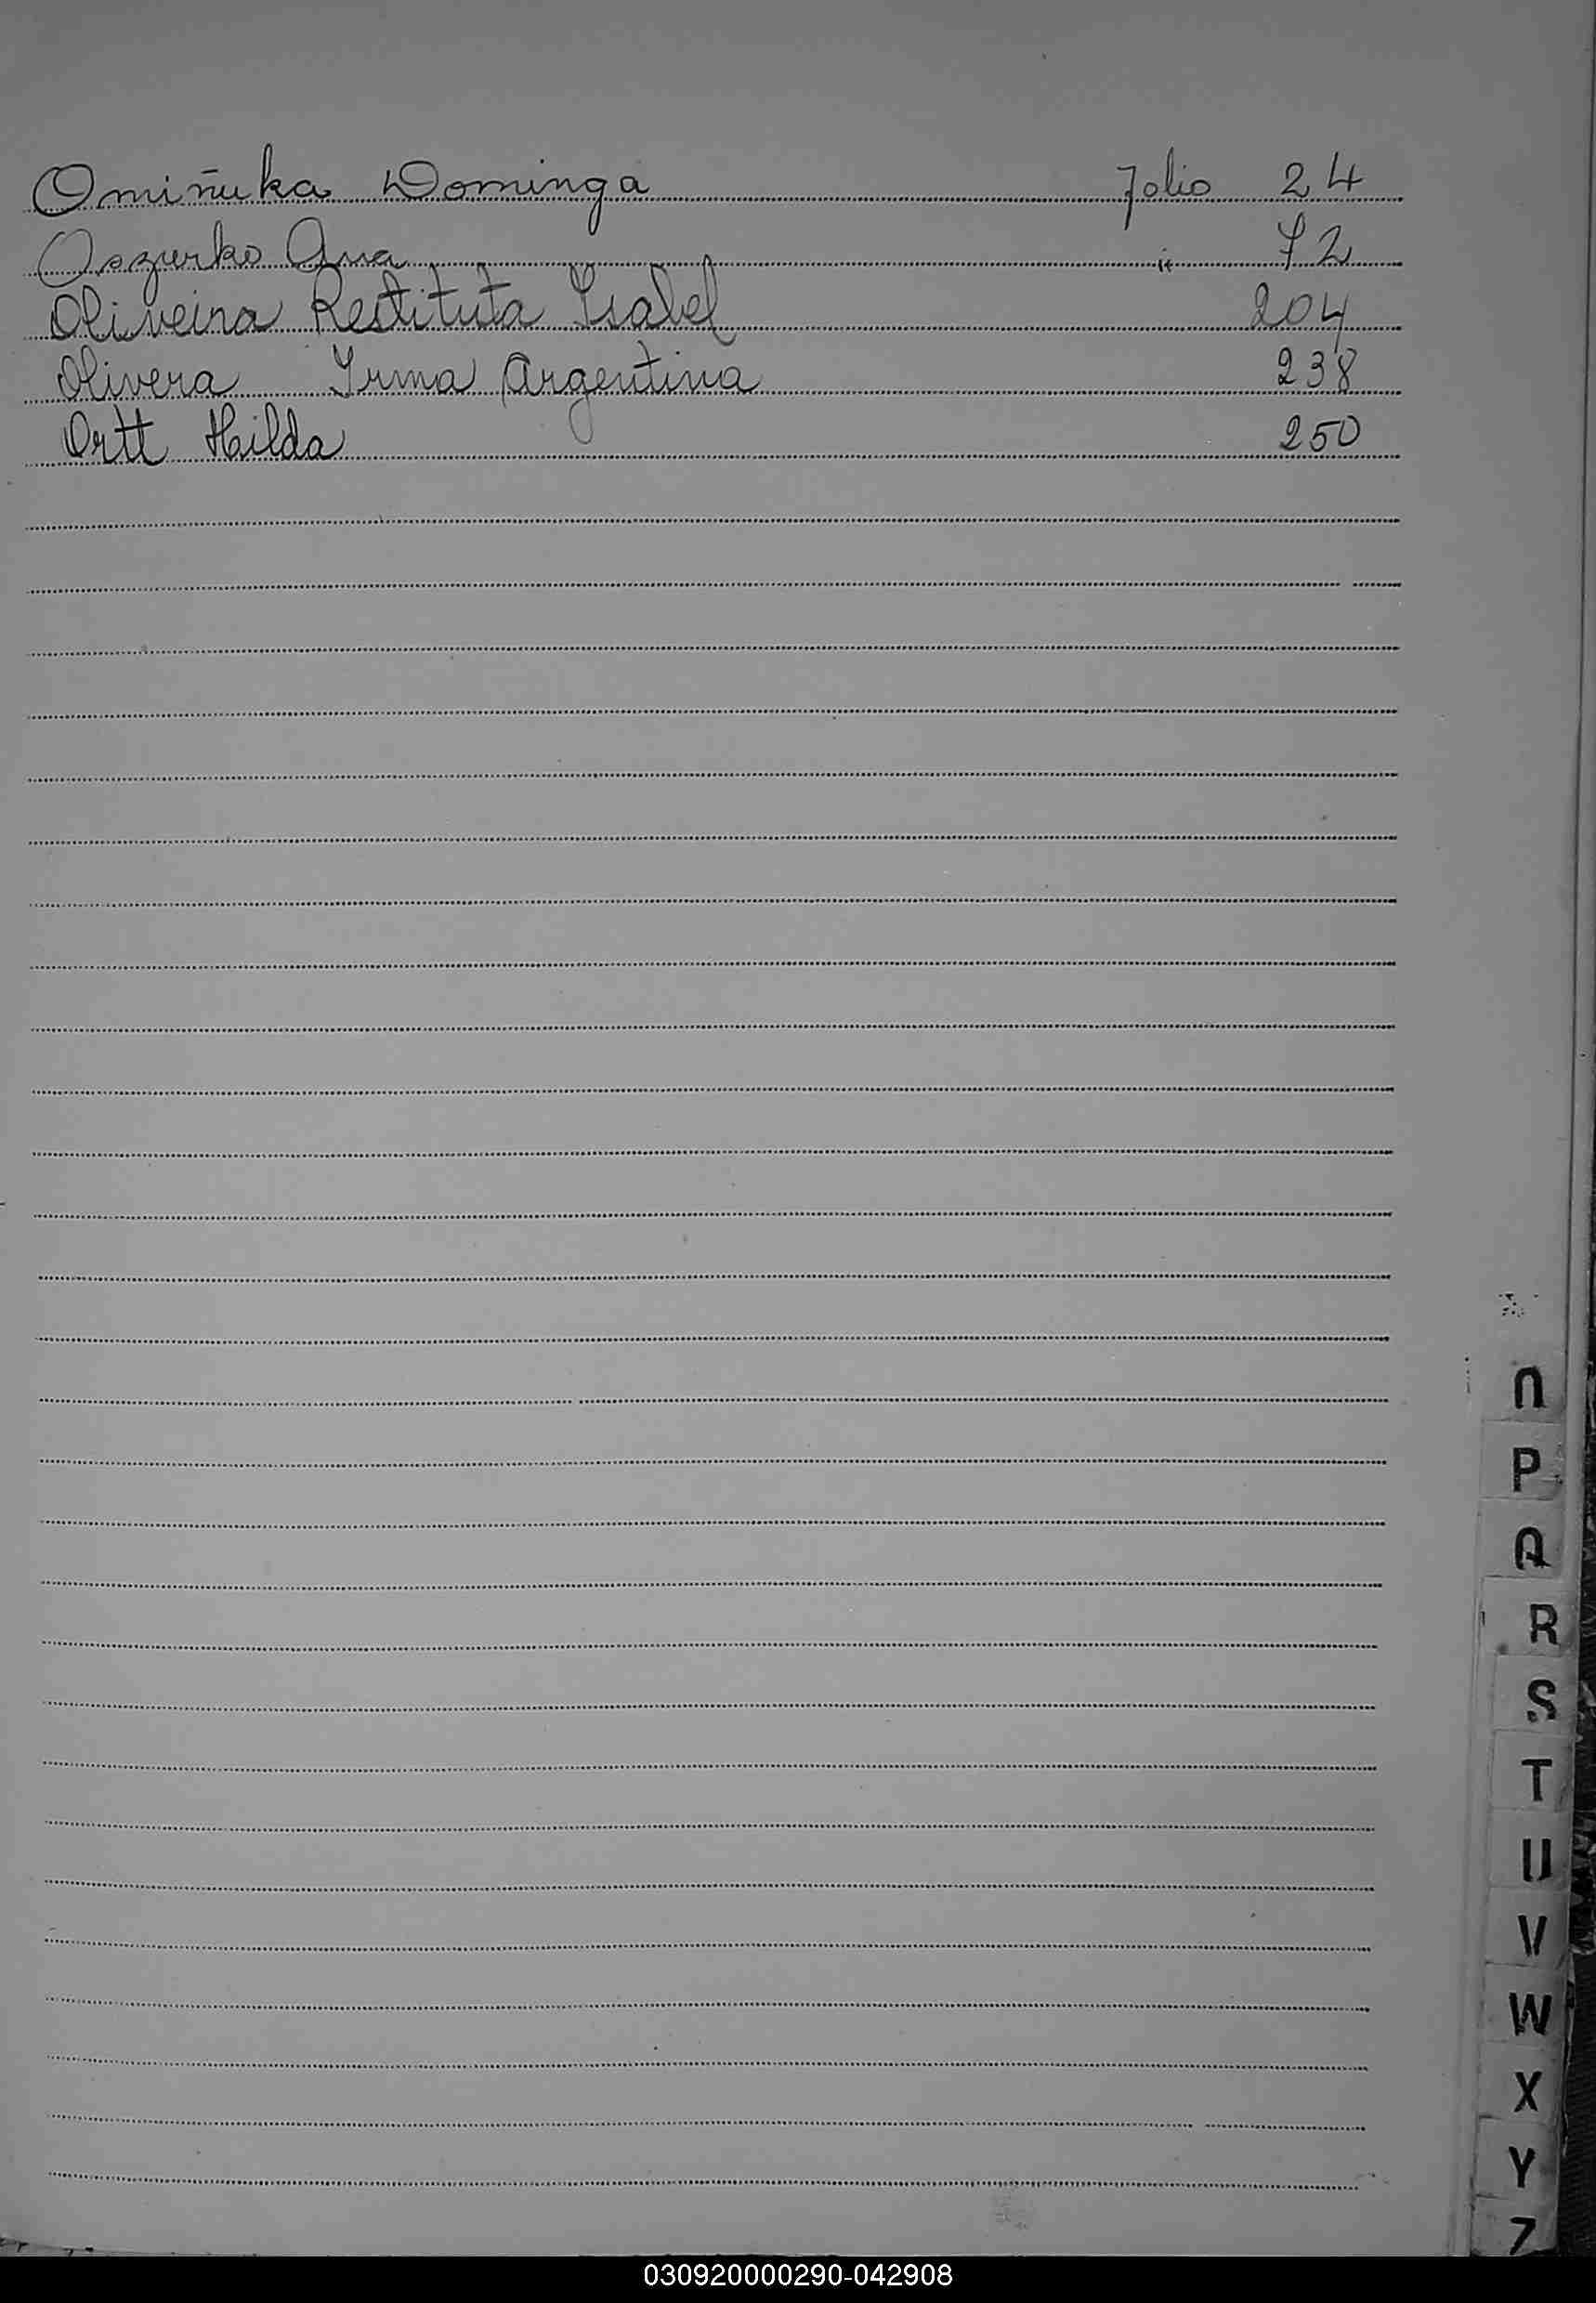 Omiñuka Dominga folio 24
Oszurko Ana " 72
Oliveira Restituta Ysabel 204
Olivera Yrma Argentina 238
Ortt Hilda 250
O
P
Q
R
S
T
U
V
W
X
Y
Z
030920000290-042908